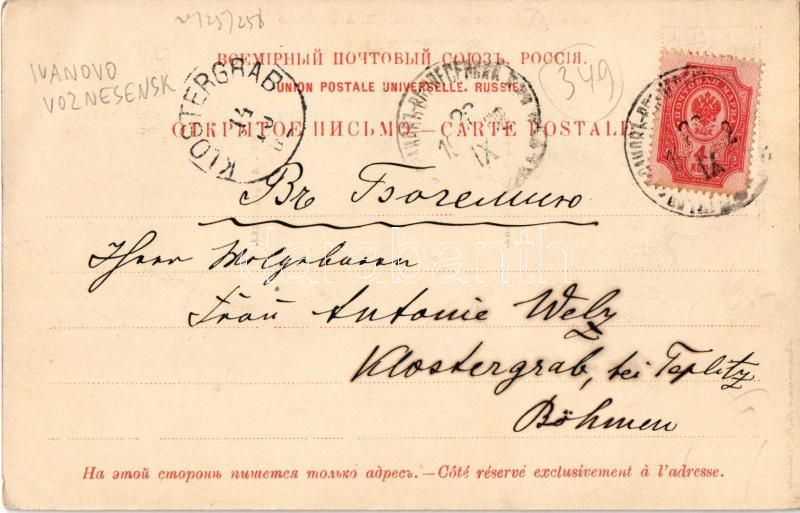 IVANOVO
VOZNESENSK
349
KLOSTERGRAB
ВСЕМІРНЫЙ ПОЧТОВЫЙ СОЮЗЪ. РОССІЯ.
UNION POSTALE UNIVERSELLE. RUSSIE.
ОТКРЫТОЕ ПИСЬМО — CARTE POSTALE
IX
IX
Въ Богемию
Herr Wolgebaren
Frau Antonie Welz
Klostergrab, bei Teplitz
Böhmen
darabanth
На этой сторонѣ пишется только адресъ. — Côté réservé exclusivement à l'adresse.